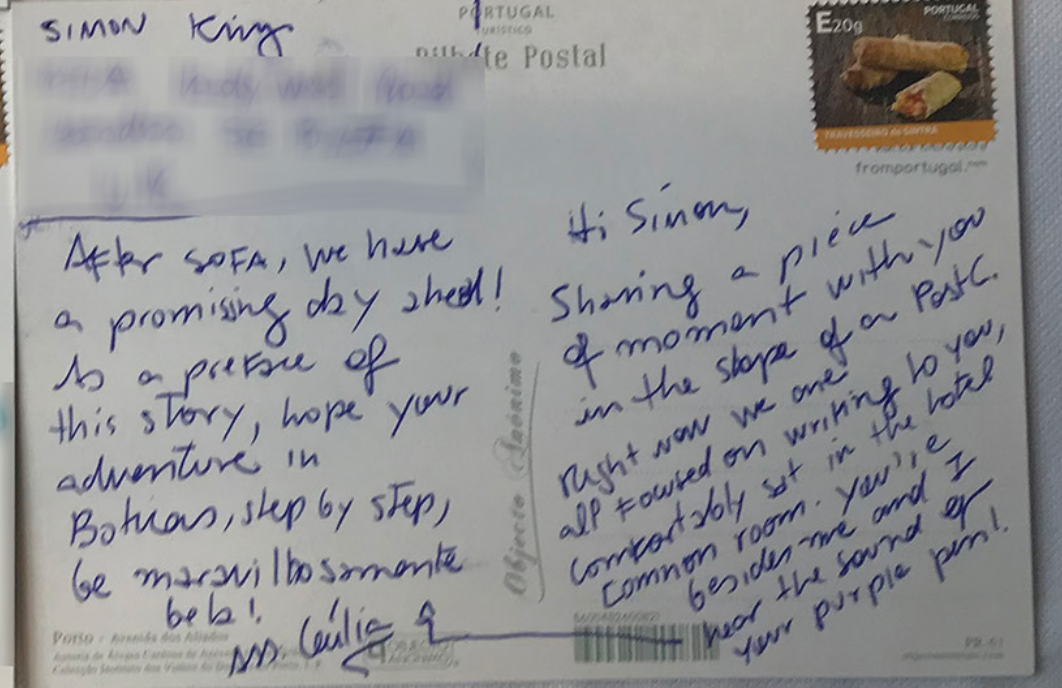 SIMON King
PORTUGAL
TURÍSTICO
Bilhete Postal
E20g
PORTUGAL
TRAVESSEIRO de SINTRA
fromportugal.com
After SOFA, we have
a promising day ahead!
As a preface of
this story, hope your
adventure in
Boticas, step by step,
be maravilhosamente
bela!
M. Cecília
Hi Simon,
Sharing a piece
of moment with you
in the shape of a PostC.
Right now we are
all focused on writing to you,
comfortably sat in the hotel
common room. You're
besides me and I
hear the sound of
your purple pen!
Objecto Anónimo
Porto - Avenida dos Aliados
PB-61